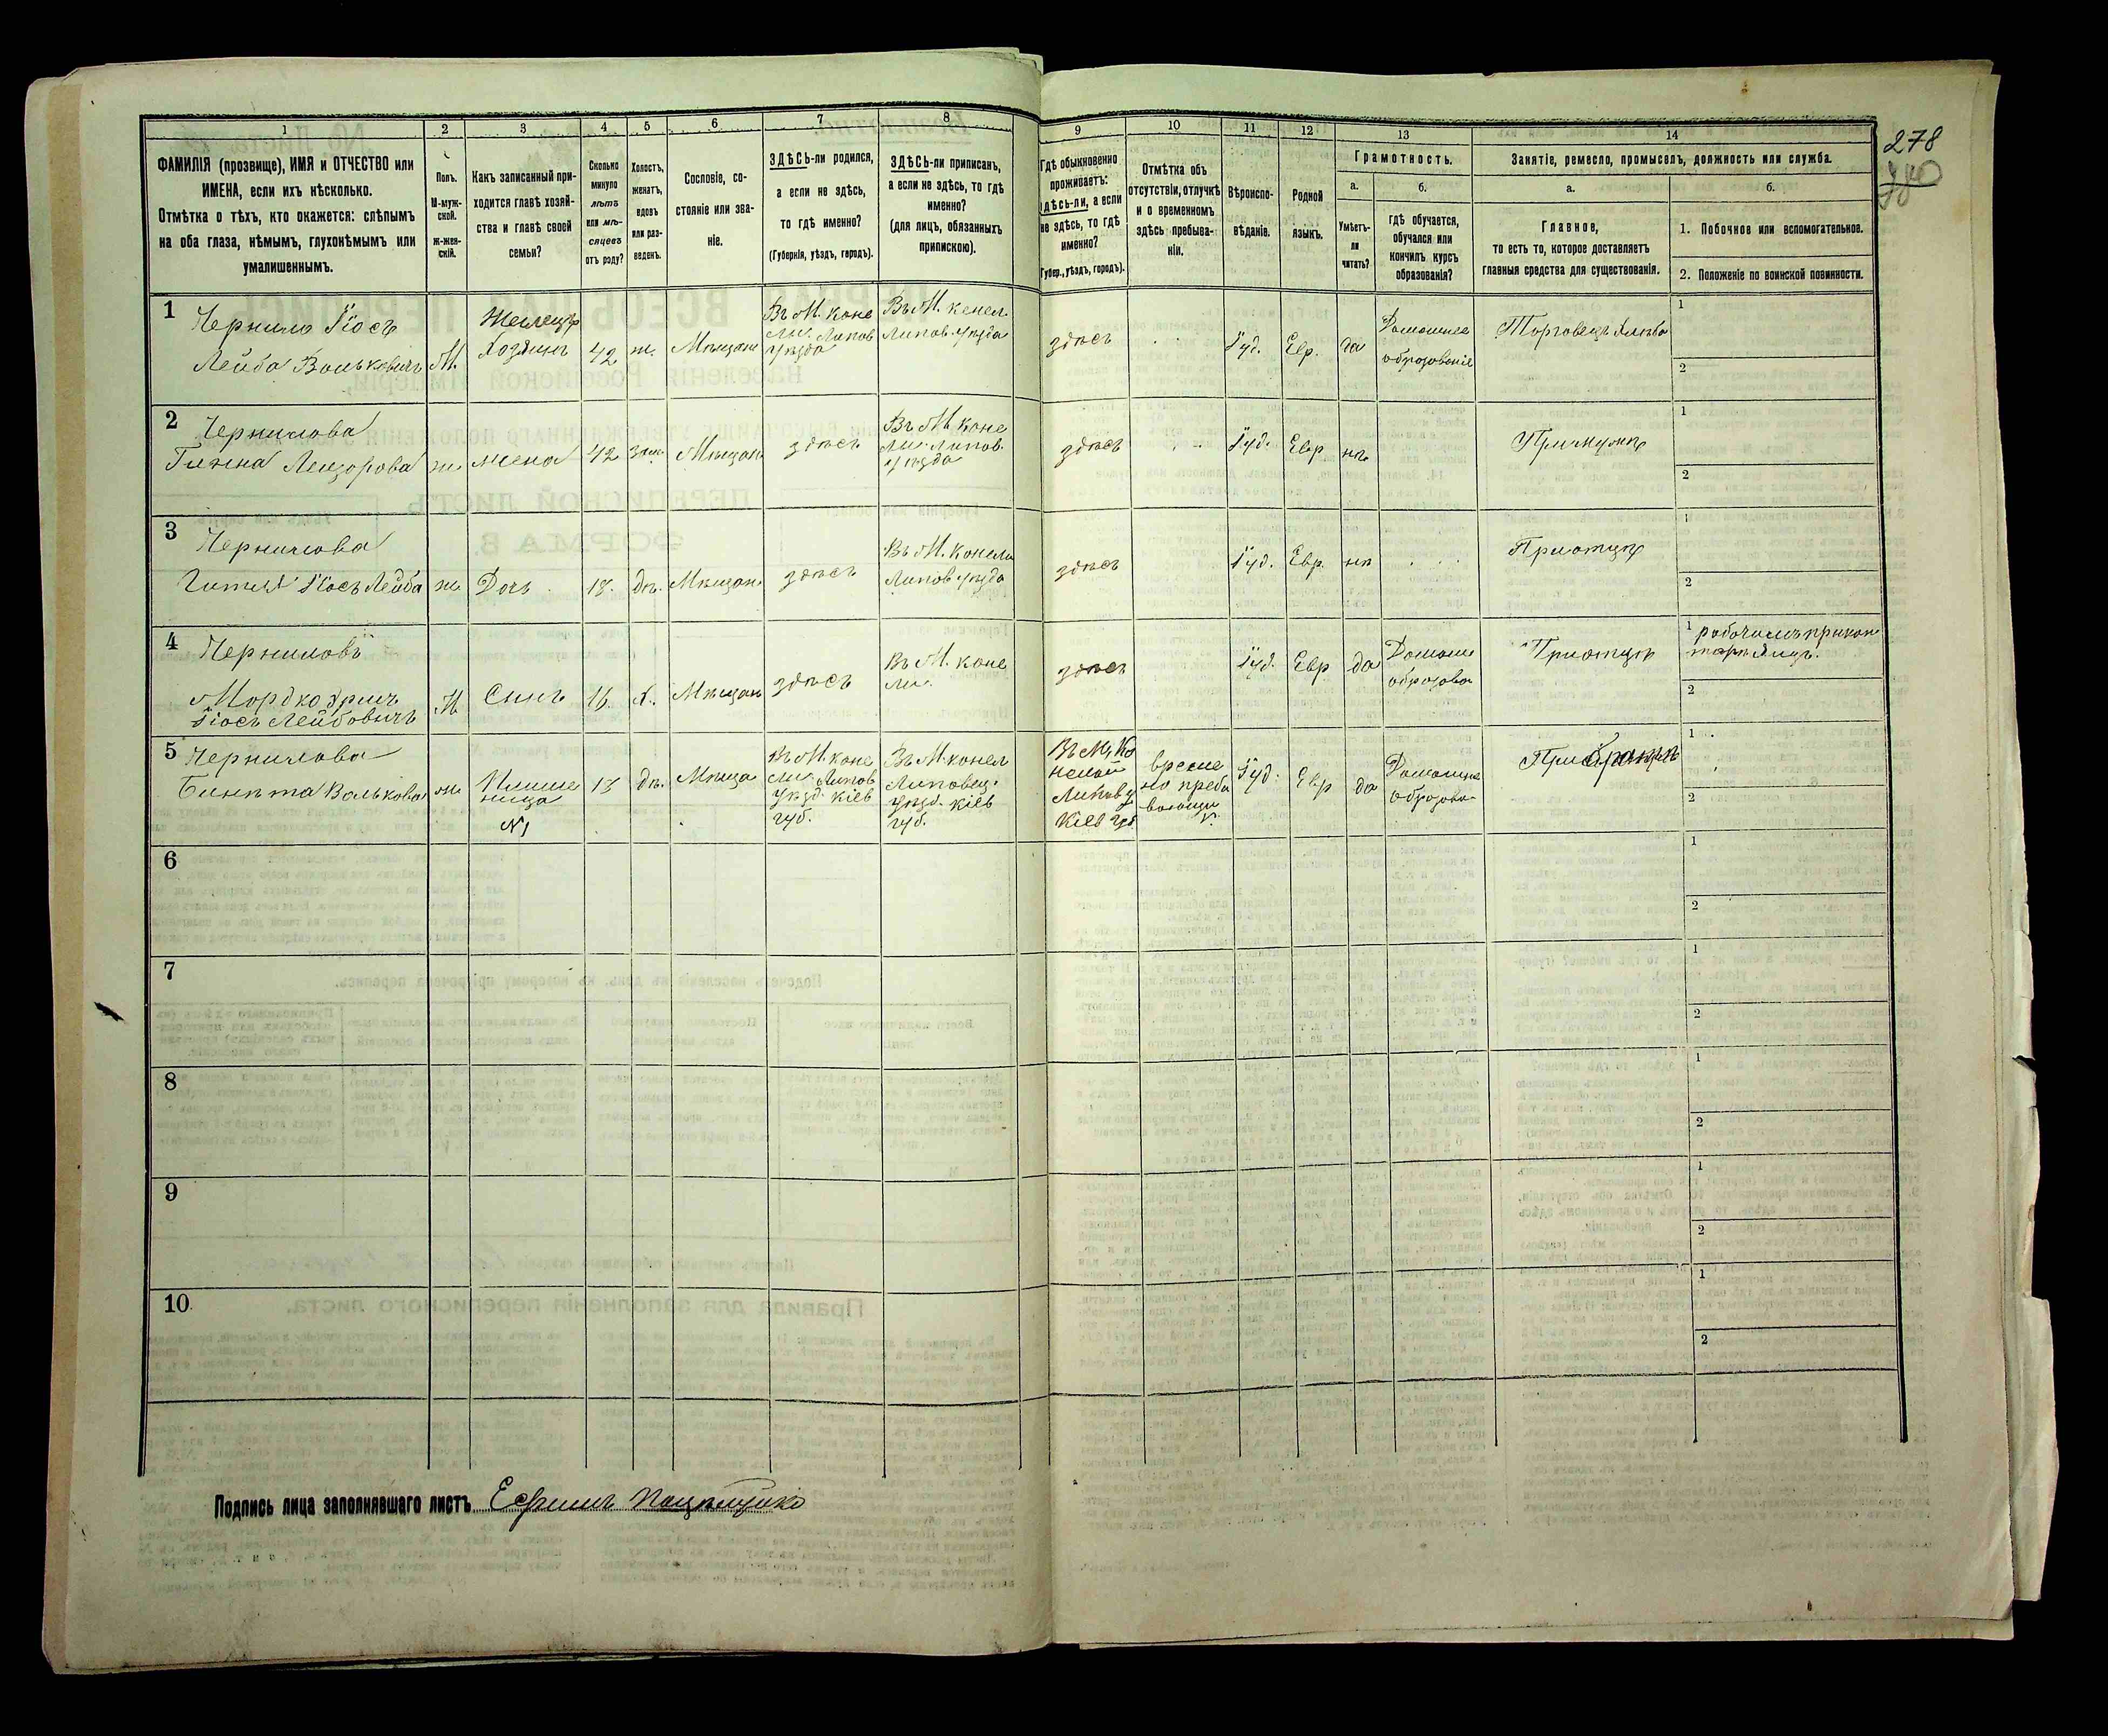 278
1
2
3
4
5
6
7
8
9
10
11
12
13
14
ФАМИЛІЯ (прозвище), ИМЯ и ОТЧЕСТВО или
ИМЕНА, если ихъ нѣсколько.
Отмѣтка о тѣхъ, кто окажется: слѣпымъ
на оба глаза, нѣмымъ, глухонѣмымъ или
умалишеннымъ.
Полъ.
М-муж-
ской.
Ж-жен-
скій.
Какъ записанный при-
ходится главѣ хозяй-
ства и главѣ своей
семьи?
Сколько
минуло
лѣтъ
или мѣ-
сяцевъ
отъ роду?
Холостъ,
женатъ,
вдовъ
или раз-
веденъ.
Сословіе, со-
стояніе или зва-
ніе.
ЗДѢСЬ-ли родился,
а если не здѣсь,
то гдѣ именно?
(Губернія, уѣздъ, городъ).
ЗДѢСЬ-ли приписанъ,
а если не здѣсь, то гдѣ
именно?
(для лицъ, обязанныхъ
припискою).
Гдѣ обыкновенно
проживаетъ:
здѣсь-ли, а если
не здѣсь, то гдѣ
именно?
(Губер., уѣздъ, городъ).
Отмѣтка объ
отсутствіи, отлучкѣ
и о временномъ
здѣсь пребыва-
ніи.
Вѣроиспо-
вѣданіе.
Родной
языкъ.
Грамотность.
а.
б.
Умѣетъ-
ли
читать?
гдѣ обучается,
обучался или
кончилъ курсъ
образованія?
Занятіе, ремесло, промыселъ, должность или служба.
а.
б.
Главное,
то есть то, которое доставляетъ
главныя средства для существованія.
1. Побочное или вспомогательное.
2. Положеніе по воинской повинности.
1
Іось
Лейба Вольковичъ
М.
Жилецъ
Хозяинъ
42
ж.
Мѣщан
Въ М. Коне
ли. Липов
Уѣзда
Въ М. Кенел
Липов. Уѣзда
здѣсь
Іуд.
Евр.
да
Домашнее
образованіе
Торговецъ
1
2
2
Чернилова
ж.
жена
42
зам.
Мѣщан
здѣсь
Въ М. Коне
ли. Липов.
Уѣзда
здѣсь
Іуд.
Евр
нѣ
При мужѣ
1
2
3
Чернилова
Іось Лейба
ж.
Дочь
18.
дѣ.
Мѣщан.
здѣсь
Въ М. Конели
Липов Уѣзда
здѣсь
Іуд.
Евр.
нѣ
При отцѣ
1
2
4
Черниловъ
Мордко
Іось Лейбовичъ
М.
Сынъ
16.
х.
Мѣщан
здѣсь
Въ М. Коне
ли.
здѣсь
Іуд.
Евр
да
Домашн
образова
При отцѣ
1
2
5
Чернилова
Волькова
ж.
Племе
ница
№ 1
13
дѣ.
Мѣща
Въ М. Коне
ли. Липов
Уѣзд. Кіев
губ.
Въ М. Конел
Липовец.
Уѣзд. Кіев
губ.
Липов у
Кіев губ.
време
но преба
Іуд.
Евр
да
Домашне
образова
1
2
6
1
2
7
1
2
8
1
2
9
1
2
10.
1
2
Подпись лица заполнявшаго листъ